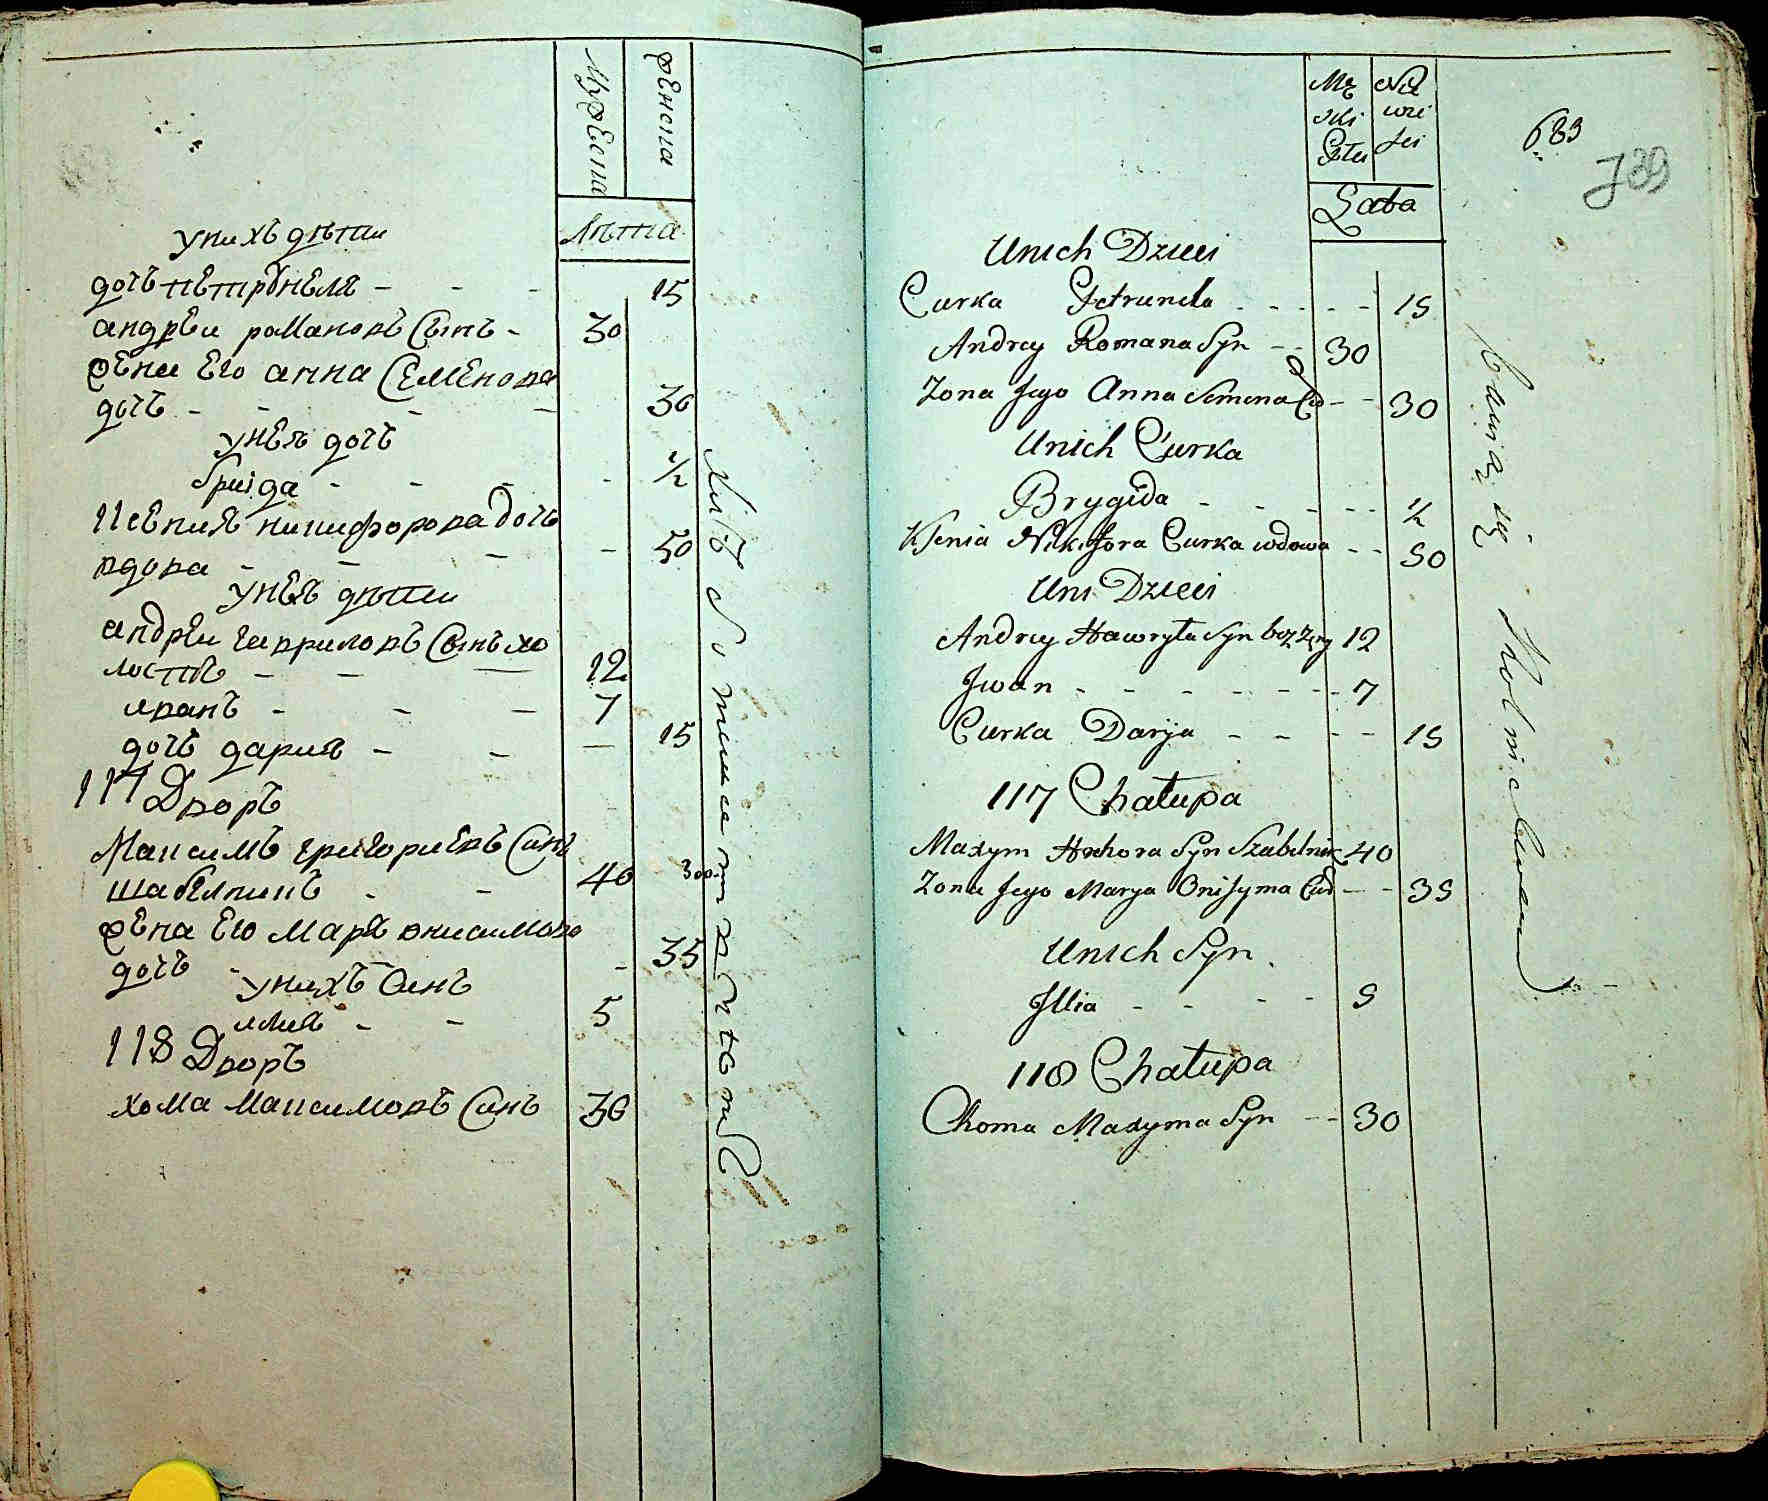 Мужеска
женска
Лѣта
унихъ дѣти
дочь петрунеля - - - 15
андрѣи романовъ Сынъ - 30
жена Его анна Семенова
дочь - - - - 30
унея дочь
бригида - - - - ½
Ксения никифорова дочь
вдова - - - - 50
унея дѣти
андрѣи гаврыловъ Сынъ хо
лостъ - - - 12
иванъ - - - 7
дочь дария - - - 15
117 Дворъ
Максимъ григориевъ Синъ
шабелникъ - - 40
жена Его Маря онисимова
дочь - - 35
унихъ Синъ
илия - - 5
118 Дворъ
хома Максимовъ Синъ 30
Mę
ski
Płeci
Lata
683
739
Unich Dzieci
Curka Petrunela - - - - - 15
Andrey Romana Syn - - 30
Zona Jego Anna Semena Cór - - 30
Unich Curka
Brygida - - - - - ½
Ksenia Nikifora Curka wdowa - - 50
Uni Dzieci
Andrey Hawryła Syn bez Zeny 12
Jwan - - - - - - - 7
Curka Darija - - - - 15
117 Chałupa
Maxym Hrehora Syn Szabelnik 40
Zona Jego Marya Onisyma Cur - - 35
Unich Syn
Jllia - - - - 5
118 Chałupa
Choma Maxyma Syn - - 30